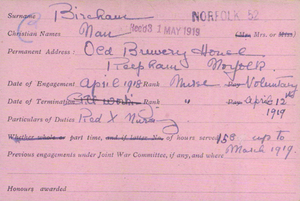 NORFOLK 52
Surname Bircham
Rec'd 31 MAY 1919
Christian Names Nan (Mrs. or Miss)
Permanent Address: Old Brewery House
Reepham Norfolk
Date of Engagement April 1918 Rank Nurse Pay Voluntary
Date of Termination Still working Rank " Pay April 12
1919
Particulars of Duties Red X Nursing
Whether whole or part time, and if latter No. of hours served 458 up to
March 1919.
Previous engagements under Joint War Committee, if any, and where
Honours awarded